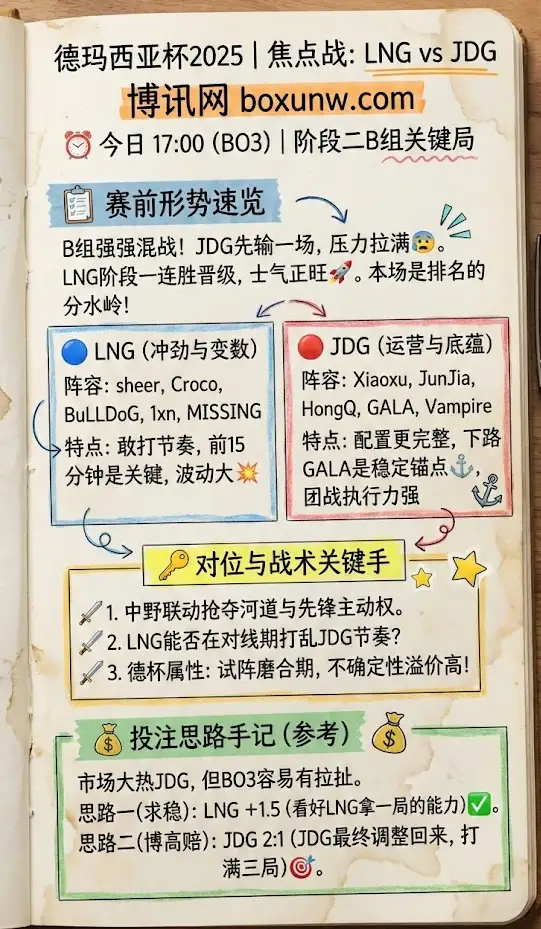 德玛西亚杯2025 | 焦点战: LNG vs JDG
博讯网 boxunw.com
⏰ 今日 17:00 (BO3) | 阶段二B组关键局
📋 赛前形势速览
B组强强混战! JDG先输一场, 压力拉满😰。
LNG阶段一连胜晋级, 士气正旺🚀。本场是排名的
分水岭!
🔵 LNG (冲劲与变数)
阵容: sheer, Croco,
BuLLDoG, 1xn, MISSING
特点: 敢打节奏, 前15
分钟是关键, 波动大💥
🔴 JDG (运营与底蕴)
阵容: Xiaoxu, JunJia,
HongQ, GALA, Vampire
特点: 配置更完整, 下路
GALA是稳定锚点⚓,
团战执行力强
🔑 对位与战术关键手
🗡️ 1. 中野联动抢夺河道与先锋主动权。
🗡️ 2. LNG能否在对线期打乱JDG节奏?
🗡️ 3. 德杯属性: 试阵磨合期, 不确定性溢价高!
💰 投注思路手记 (参考) 💰
市场大热JDG, 但BO3容易有拉扯。
思路一(求稳): LNG +1.5 (看好LNG拿一局的能力)✅。
思路二(博高赔): JDG 2:1 (JDG最终调整回来, 打
满三局)🎯。